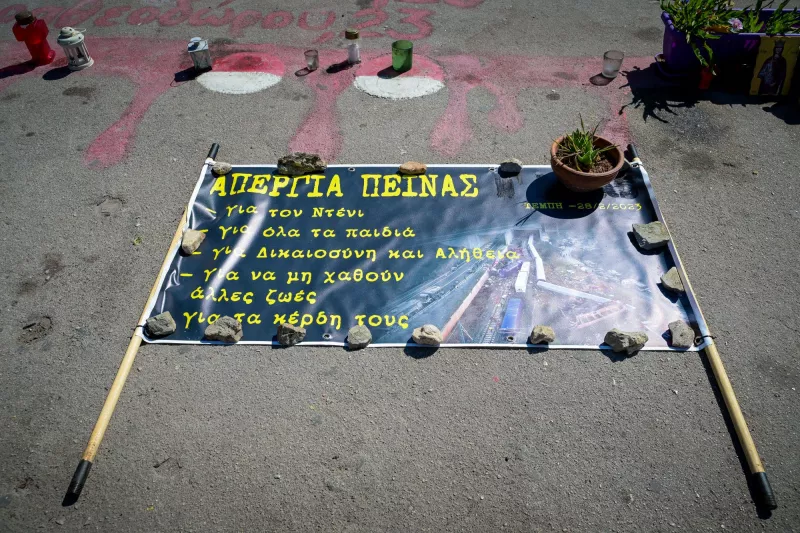 ΑΠΕΡΓΙΑ ΠΕΙΝΑΣ
ΤΕΜΠΗ -28/2/2023
- για τον Ντένι
- για όλα τα παιδιά
- για Δικαιοσύνη και Αλήθεια
- για να μη χαθούν
άλλες ζωές
για τα κέρδη τους